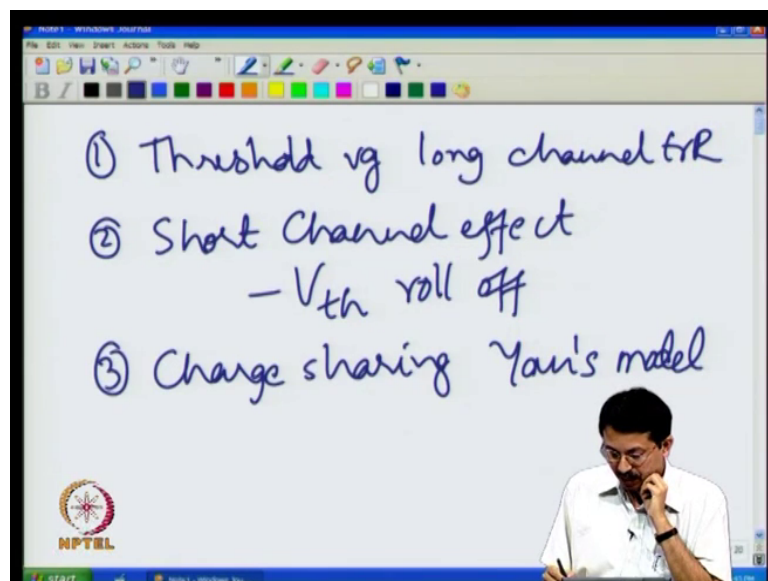 Note1 - Windows Journal
File Edit View Insert Actions Tools Help
B I
① Threshold vg long channel trR
② Short Channel effect
- Vth roll off
③ Charge sharing Yau's model
NPTEL
start
Note1 - Windows Jou...
20